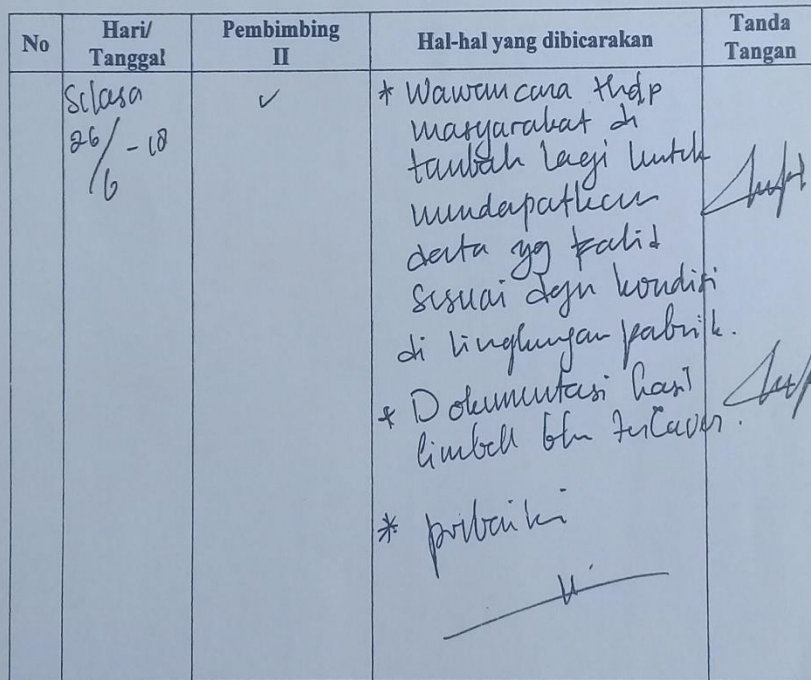 No
Hari/
Tanggal
Pembimbing
II
Hal-hal yang dibicarakan
Tanda
Tangan
Selasa
26/6 - 18
* Wawancara thdp
masyarakat di
tambah lagi untuk
mendapatkan
data yg valid
sesuai dgn kondisi
di lingkungan pabrik.
* Dokumentasi hasil
limbah blm
* perbaiki